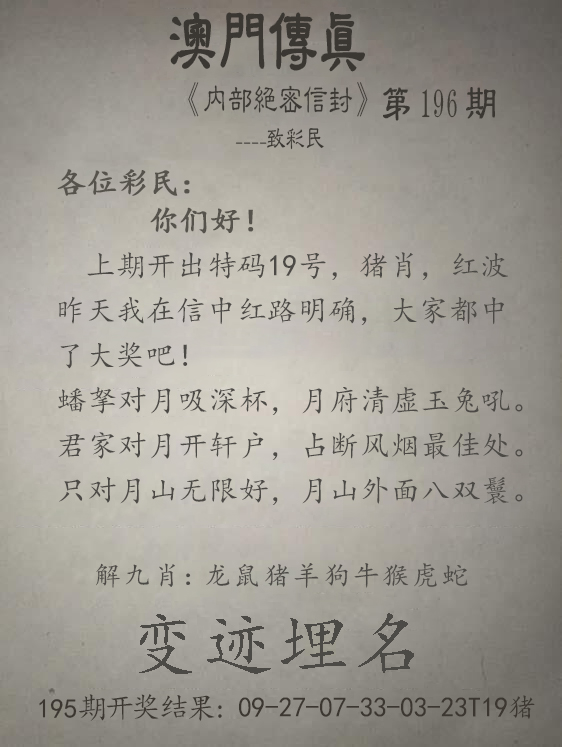 澳門傳眞
《内部絕密信封》第196期
----致彩民
各位彩民：
你们好！
上期开出特码19号，猪肖，红波
昨天我在信中红路明确，大家都中
了大奖吧！
蟠拏对月吸深杯，月府清虚玉兔吼。
君家对月开轩户，占断风烟最佳处。
只对月山无限好，月山外面八双鬟。
解九肖：龙鼠猪羊狗牛猴虎蛇
变迹埋名
195期开奖结果：09-27-07-33-03-23T19猪